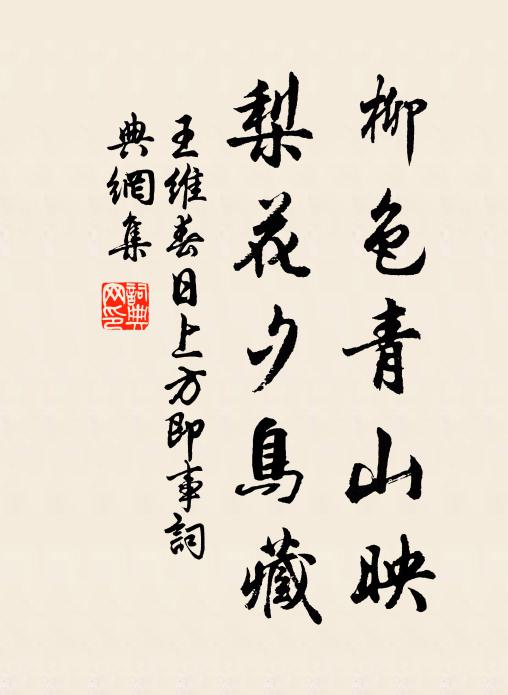 柳色青山映
梨花夕鳥藏
王維春日上方即事詞
典網集
詞典網印